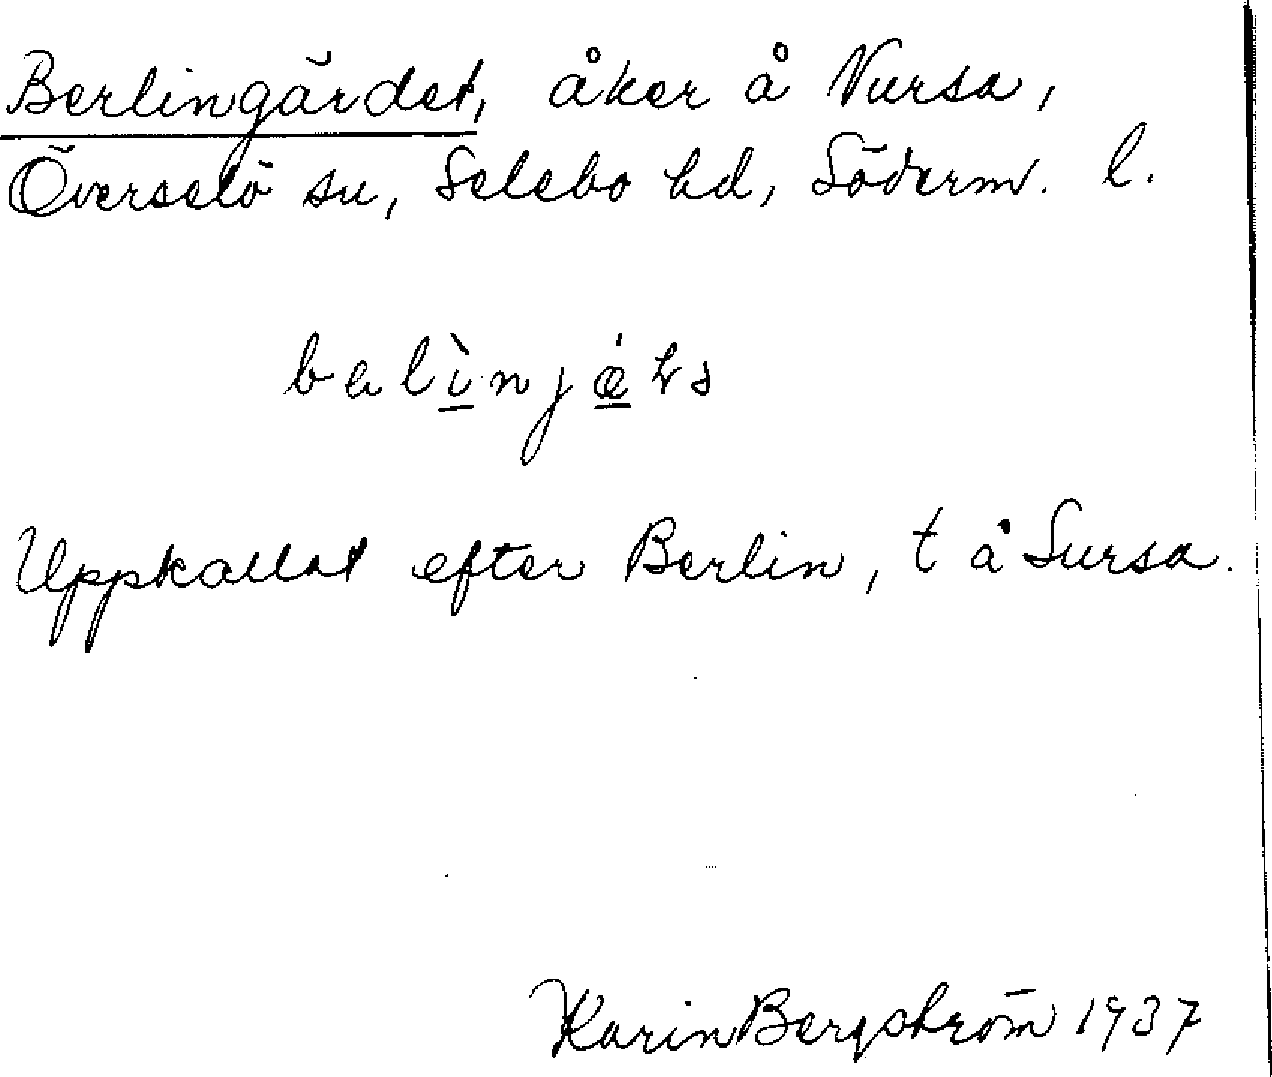 Berlingärdet, åker å Vursa,
Överselö sn, Selebo hd, Söderm. l.
Uppkallat efter Berlin, t å Sursa.
Karin Bergström 1937